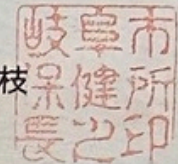 枝
岐阜市
保健所
長之印